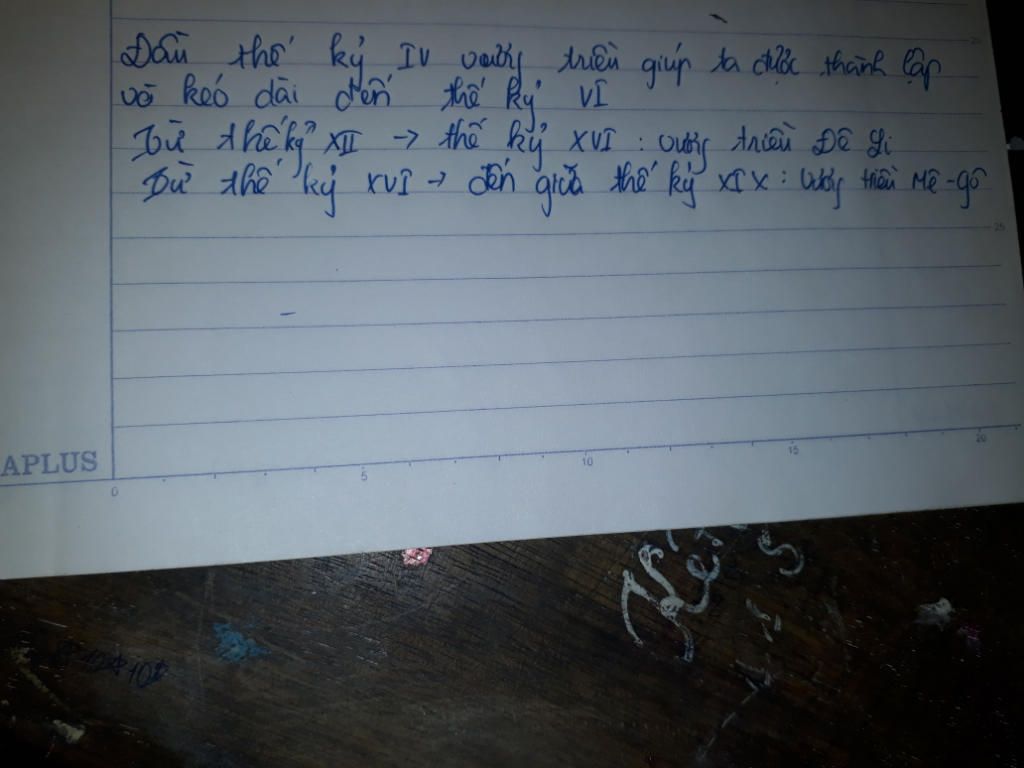 Đầu thế kỷ IV vương triều giúp ta được thành lập
và kéo dài đến thế kỷ VI
Từ thế kỷ XII → thế kỷ XVI : vương triều Đê li
Từ thế kỷ XVI → đến giữa thế kỷ XIX : vương triều Mê-gô
25
APLUS
0 5 10 15 20